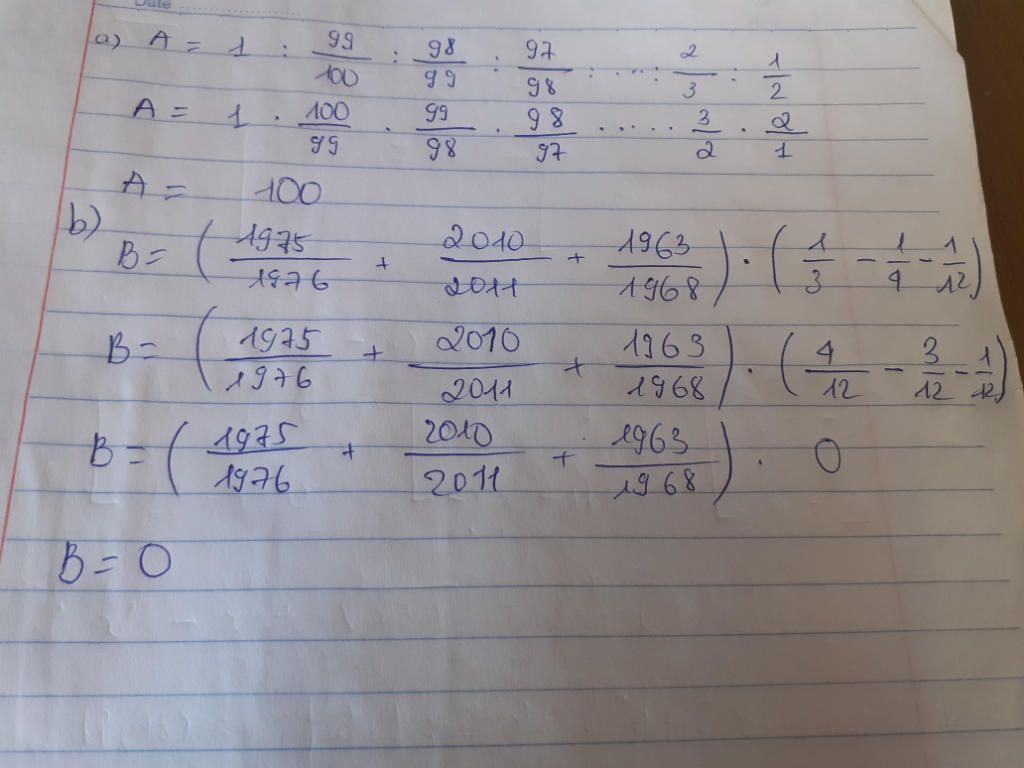 Date
a) A = 1 : 99/100 : 98/99 : 97/98 : ..... : 2/3 : 1/2
A = 1 . 100/99 . 99/98 . 98/97 ..... 3/2 . 2/1
A = 100
b)
B = (1975/1976 + 2010/2011 + 1963/1968) . (1/3 - 1/4 - 1/12)
B = (1975/1976 + 2010/2011 + 1963/1968) . (4/12 - 3/12 - 1/12)
B = (1975/1976 + 2010/2011 + 1963/1968) . 0
B = 0